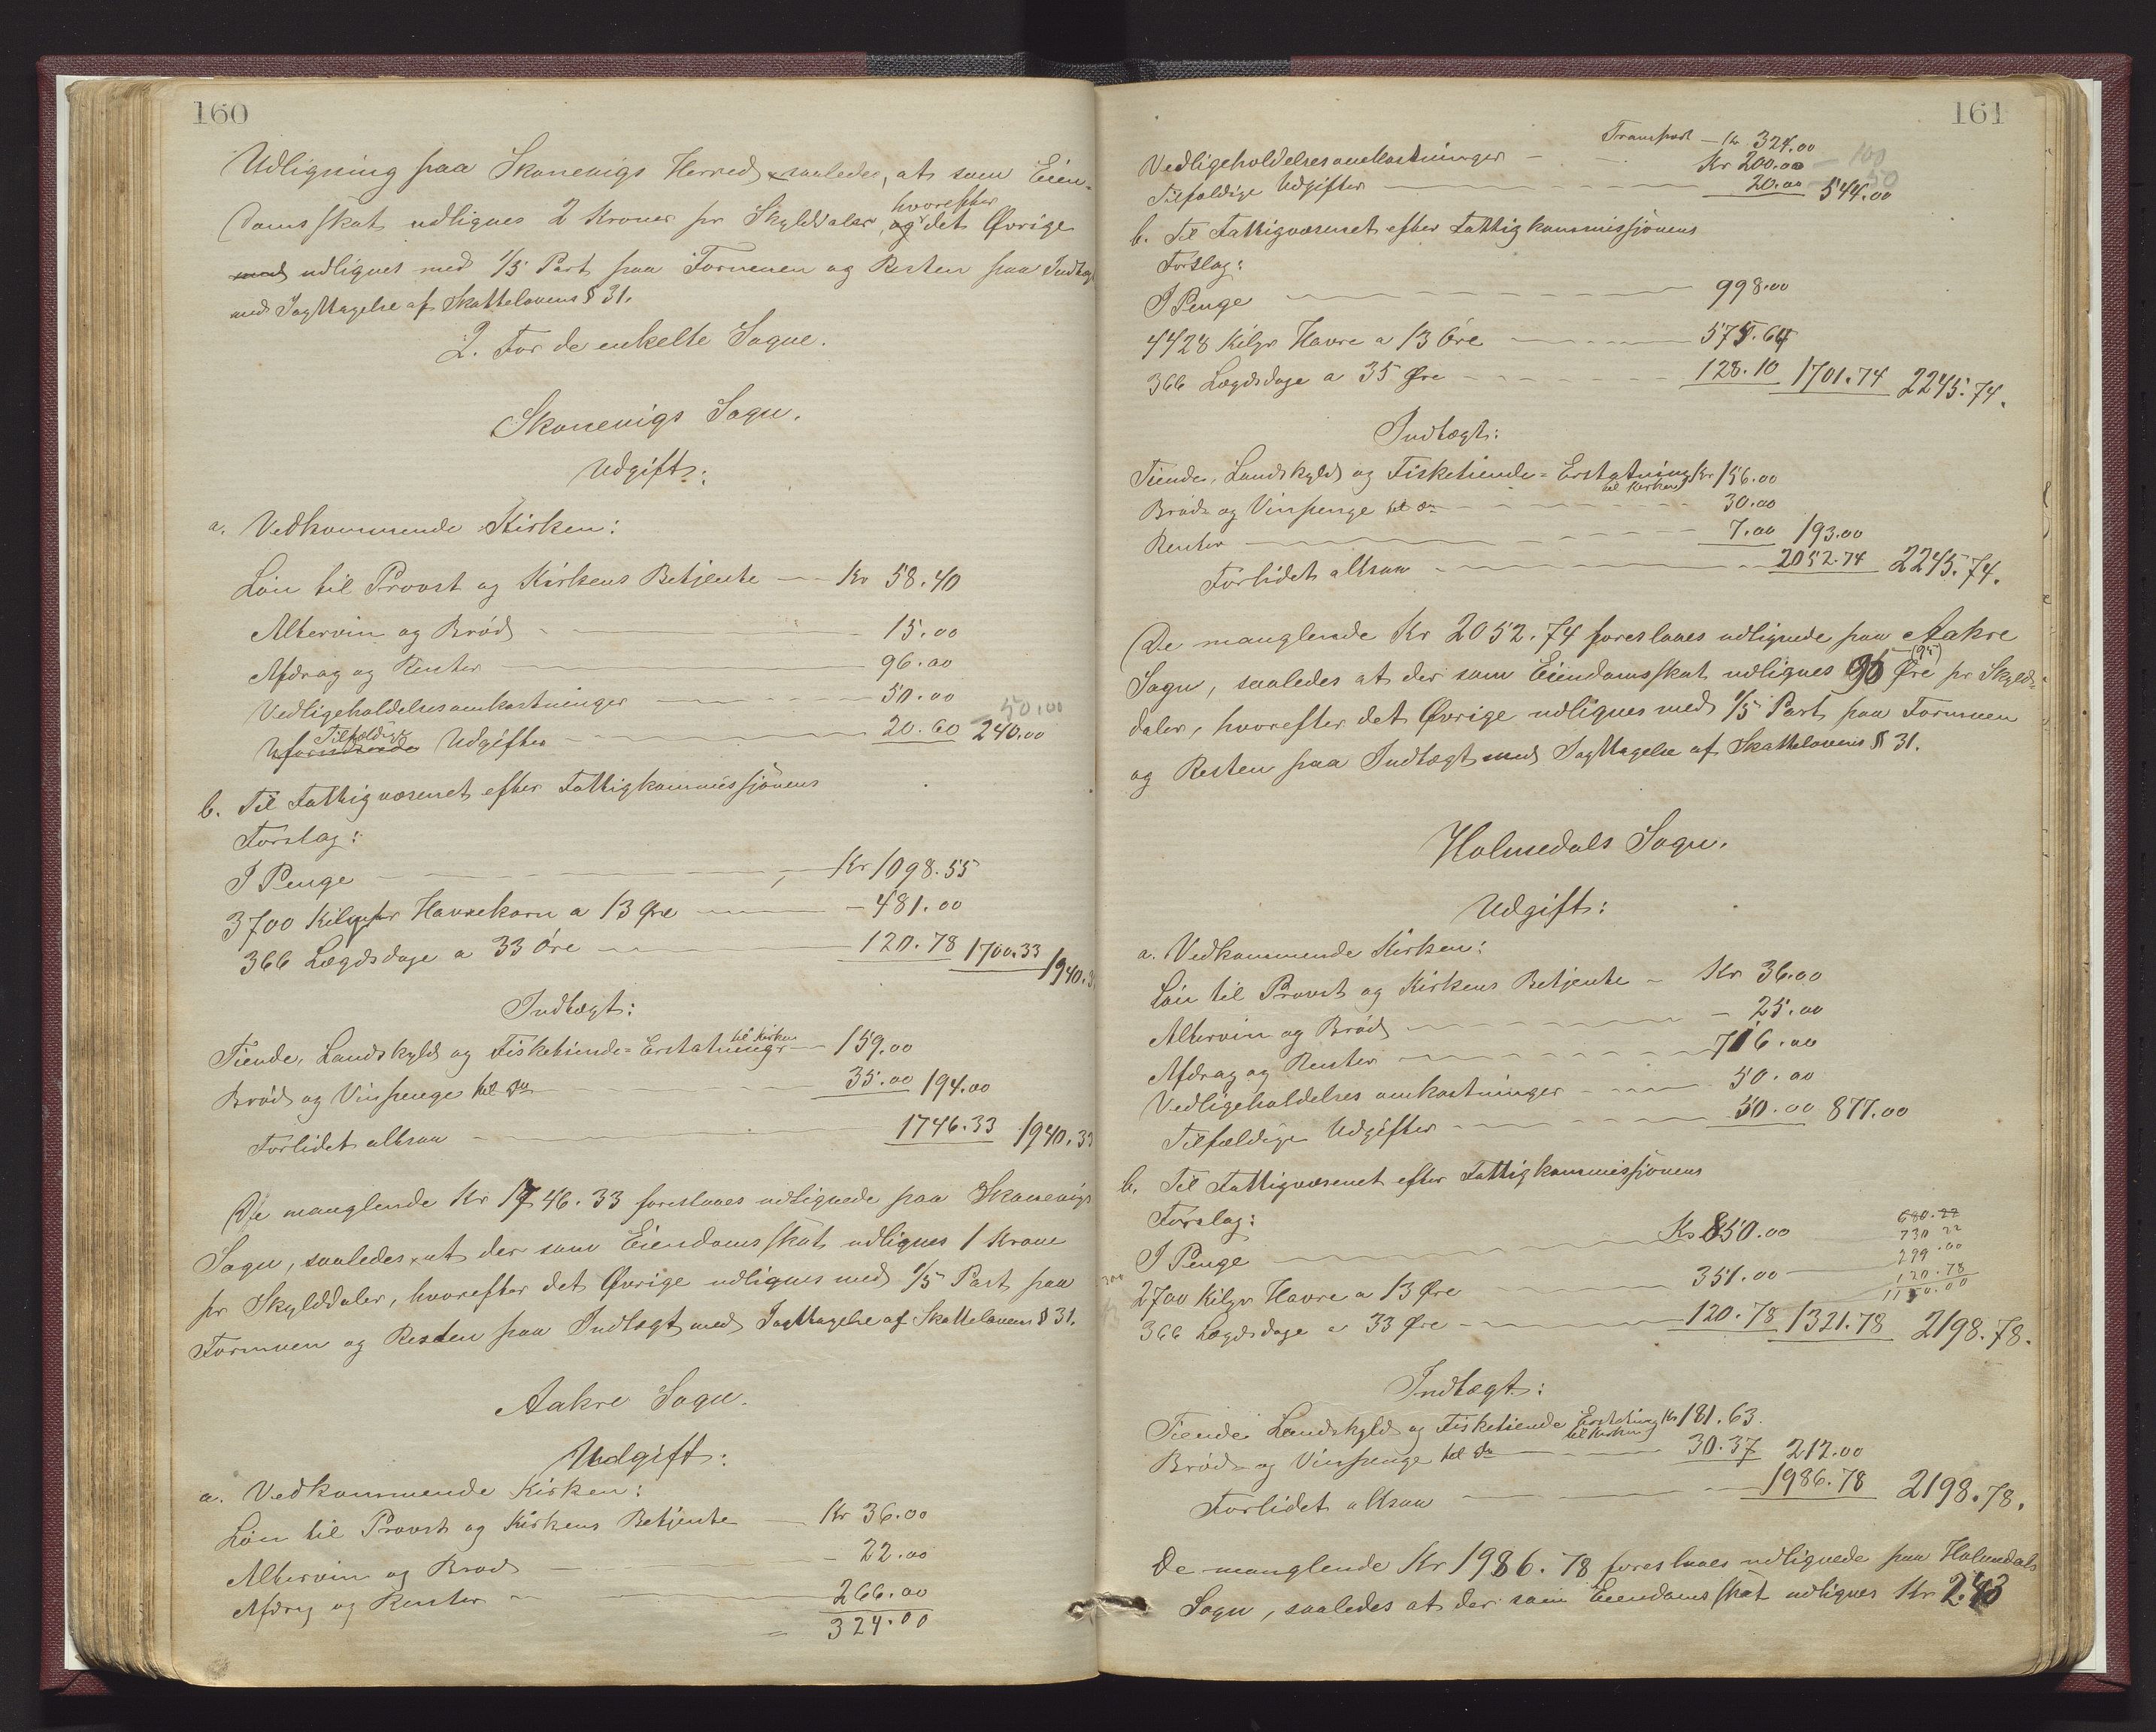 160
Udligning paa Skonevigs Herred, saaledes, at som Eien-
domsskat udlignes 2 Kroner pr Skylddaler, og hvorefter det Øvrige
med udlignes med 1/5 Part paa Formuen og Resten paa Indtægt
med Iagttagelse af Skattelovens § 31.
2. For de enkelte Sogne.
Skonevigs Sogn.
Udgift:
a. Vedkommende Kirken:
Løn til Provst og Kirkens Betjente — Kr 58.40
Altervin og Brød — 15.00
Afdrag og Renter — 96.00
Vedligeholdelsesomkostninger — 50.00 50.00
Uforudseede Tilfældige Udgifter — 20.60 240.00
b. Til Fattigvæsenet efter Fattigkommissjonens
Forslag:
I Penge — Kr 1098.55
3700 Kilogr Havrekorn a 13 Øre — 481.00
366 Lægdsdage a 33 Øre — 120.78 1700.33 1940.33
Indtægt:
Tiende, Landskyld og Fisketiende-Erstatninger til Kirken — 159.00
Brød og Vinpenge til Do — 35.00 194.00
Forlidet altsaa — 1746.33 1940.33
De manglende Kr 1746.33 foreslaaes udlignede paa Skonevigs
Sogn, saaledes at der som Eiendomsskat udlignes 1 Krone
pr Skylddaler, hvorefter det Øvrige udlignes med 1/5 Part paa
Formuen og Resten paa Indtægt med Iagttagelse af Skattelovens § 31.
Aakre Sogn.
Udgift:
a. Vedkommende Kirken:
Løn til Provst og Kirkens Betjente — Kr 36.00
Altervin og Brød — 22.00
Afdrag og Renter — 266.00
= 324.00
161
Transport — Kr 324.00
Vedligeholdelsesomkostninger — Kr 200.00 — 100
Tilfældige Udgifter — 20.00 544.00 50
b. Til Fattigvæsenet efter Fattigkommissjonens
Forslag:
I Penge — 998.00
4428 Kilgr Havre a 13 Øre — 575.64
366 Lægdsdage a 35 Øre — 128.10 1701.74 2245.74.
Indtægt:
Tiende, Landskyld og Fisketiende-Erstatning til Kirken Kr 156.00
Brød og Vinpenge til Do — 30.00
Renter — 7.00 193.00
Forlidet altsaa — 2052.74 2245.74.
De manglende Kr 2052.74 foreslaaes udlignede paa Aakre
Sogn, saaledes at der som Eiendomsskat udlignes 95 (95) Øre pr Skyld-
daler, hvorefter det Øvrige udlignes med 1/5 Part paa Formuen
og Resten paa Indtægt med Iagttagelse af Skattelovens § 31.
Holmedals Sogn.
Udgift:
a. Vedkommende Kirken:
Løn til Provst og Kirkens Betjente — Kr 36.00
Altervin og Brød — 25.00
Afdrag og Renter — 716.00
Vedligeholdelses omkostninger — 50.00
Tilfældige Udgifter — 50.00 877.00
b. Til Fattigvæsenet efter Fattigkommissjonens
Forslag: 680.22
I Penge — Kr 850.00 730 22
2700 Kilgr Havre a 13 Øre — 351.00 — 299.00
366 Lægdsdage a 33 Øre — 120.78 1321.78 2198.78.
120.78
1150.00
Indtægt:
Tiende Landskyld og Fisketiende Erstatning til Kirken Kr 181.63
Brød og Vinpenge til Do — 30.37 212.00
Forlidet altsaa — 1986.78 2198.78.
De manglende Kr 1986.78 foreslaaes udlignede paa Holmedals
Sogn, saaledes at der som Eiendomsskat udlignes Kr 2.43